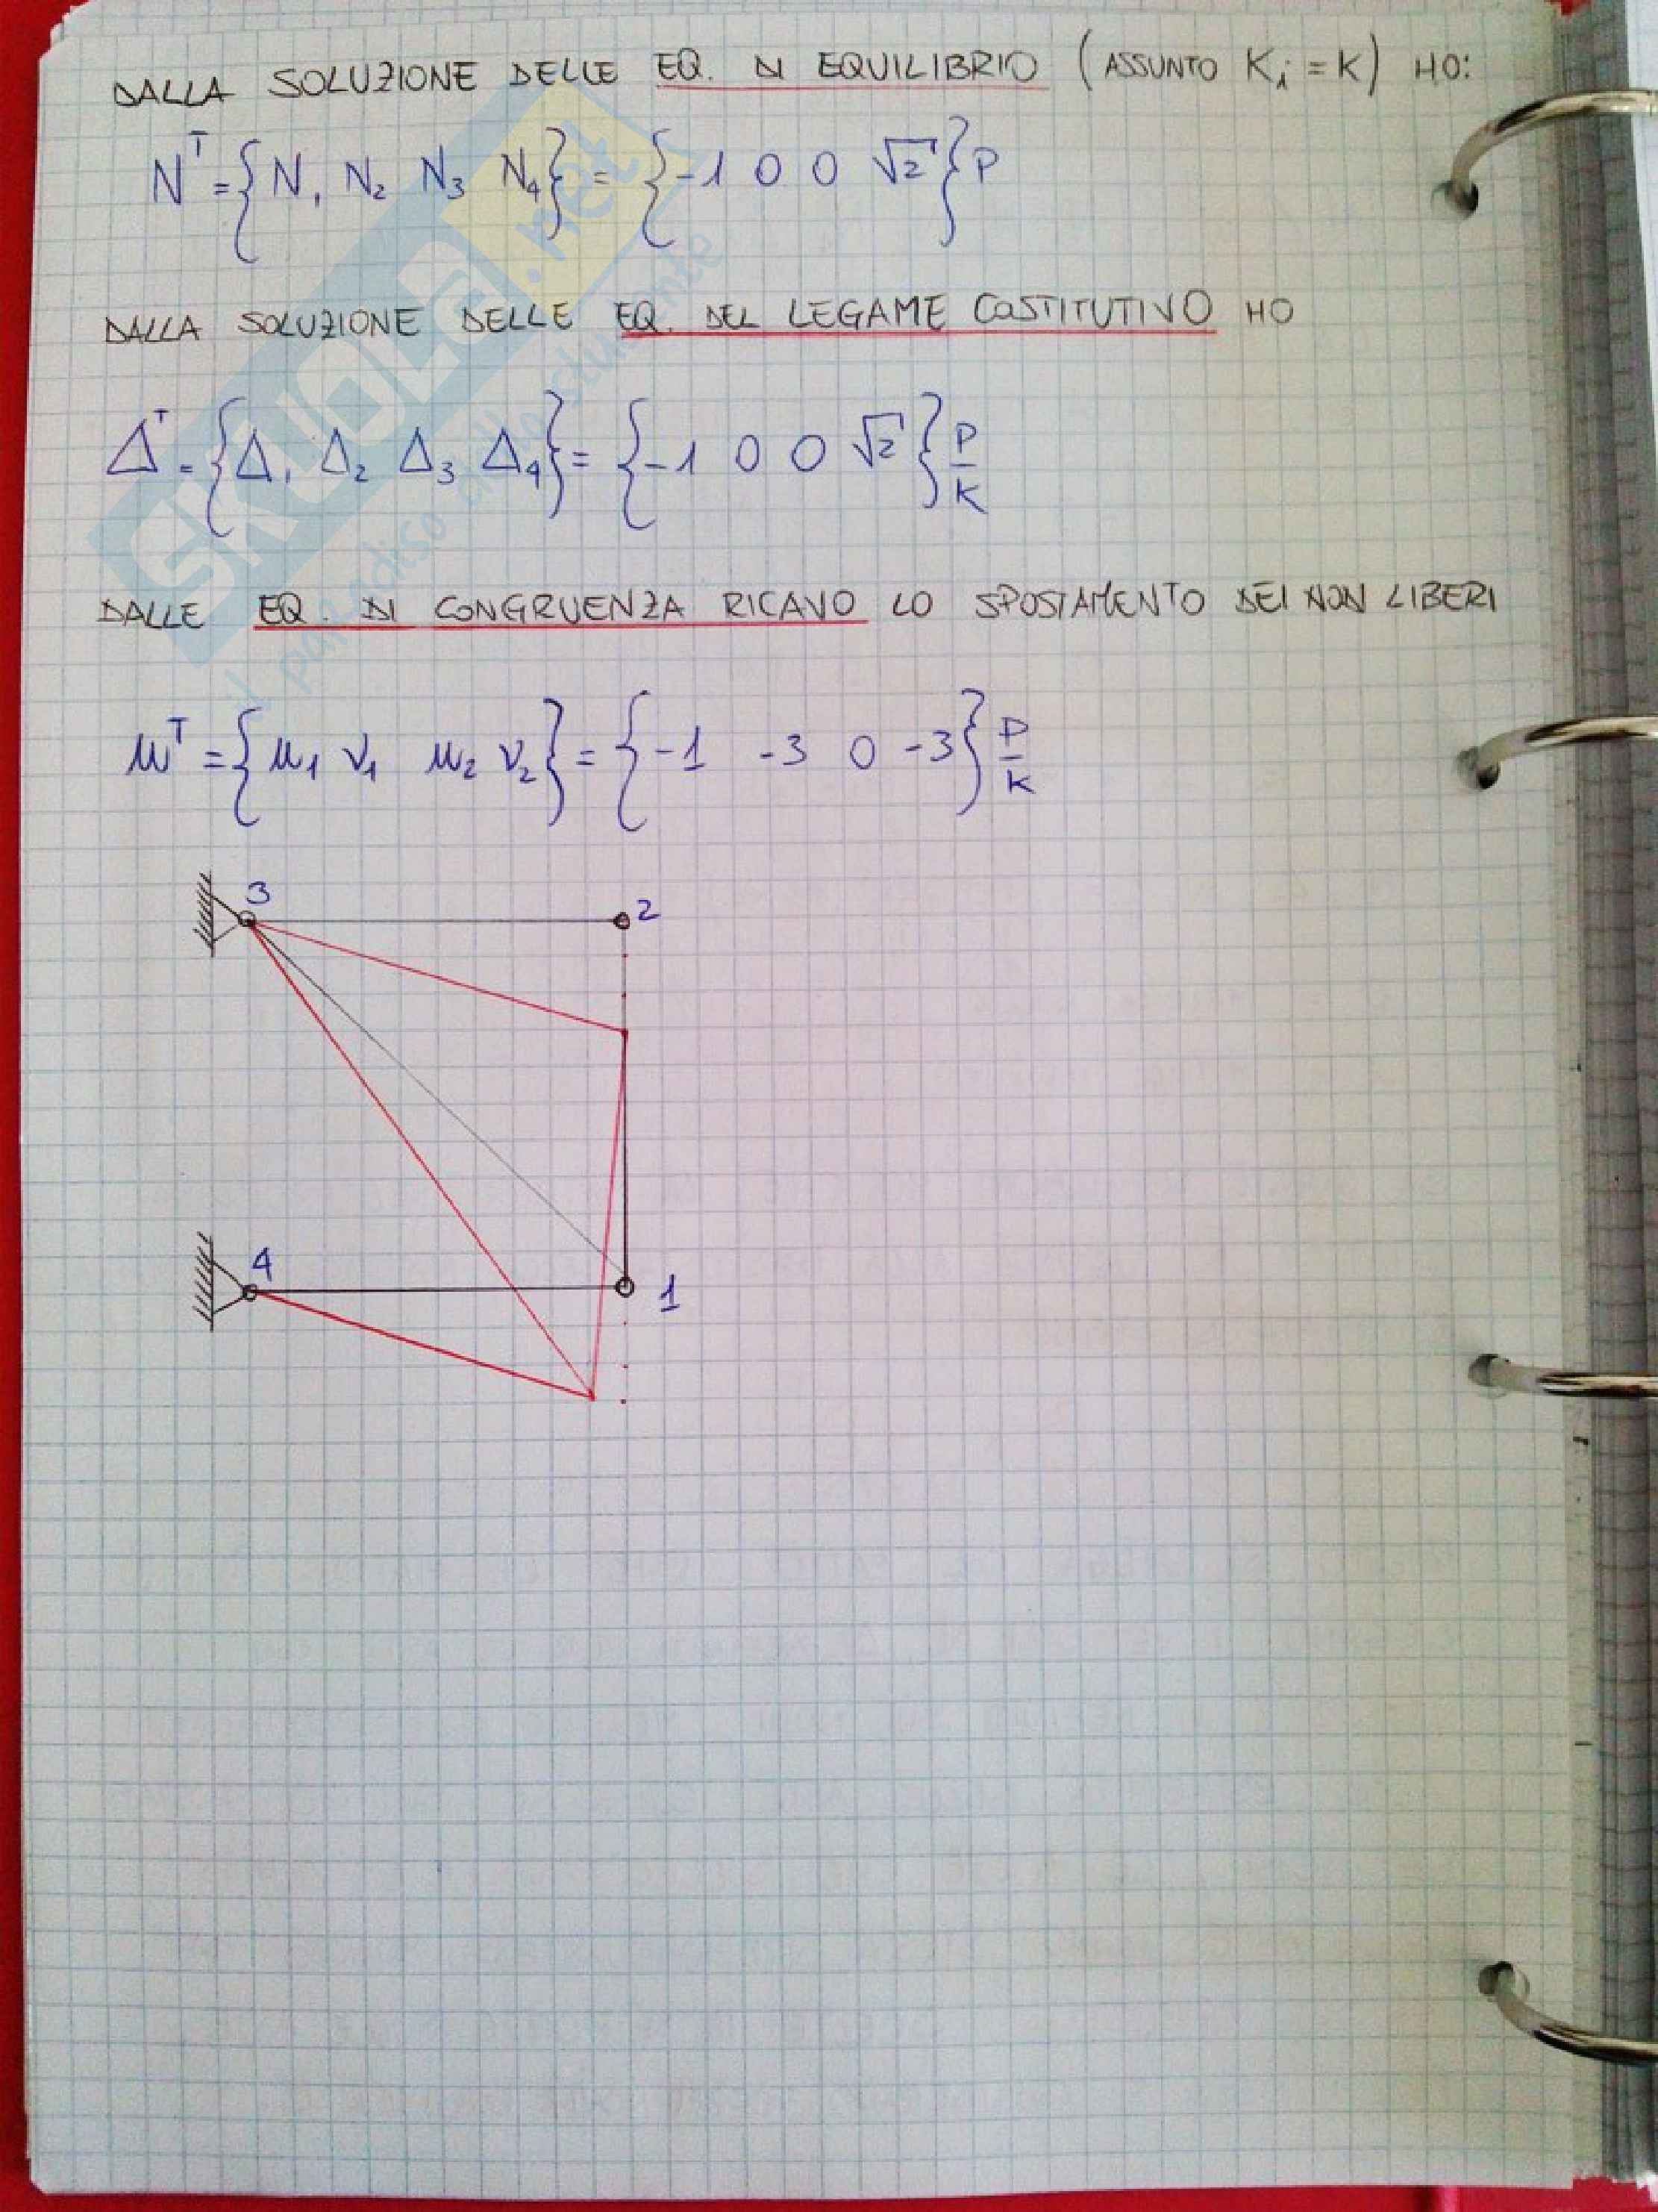 DALLA SOLUZIONE DELLE EQ. DI EQUILIBRIO (ASSUNTO Ki = K) HO:
N^T = {N1 N2 N3 N4} = {-1 0 0 √2} P
DALLA SOLUZIONE DELLE EQ. DEL LEGAME COSTITUTIVO HO
Δ^T = {Δ1 Δ2 Δ3 Δ4} = {-1 0 0 √2} P/K
DALLE EQ. DI CONGRUENZA RICAVO LO SPOSTAMENTO DEI NON LIBERI
u^T = {u1 v1 u2 v2} = {-1 -3 0 -3} P/K
3
2
4
1
SKUOLA.net
il paradiso dello studente